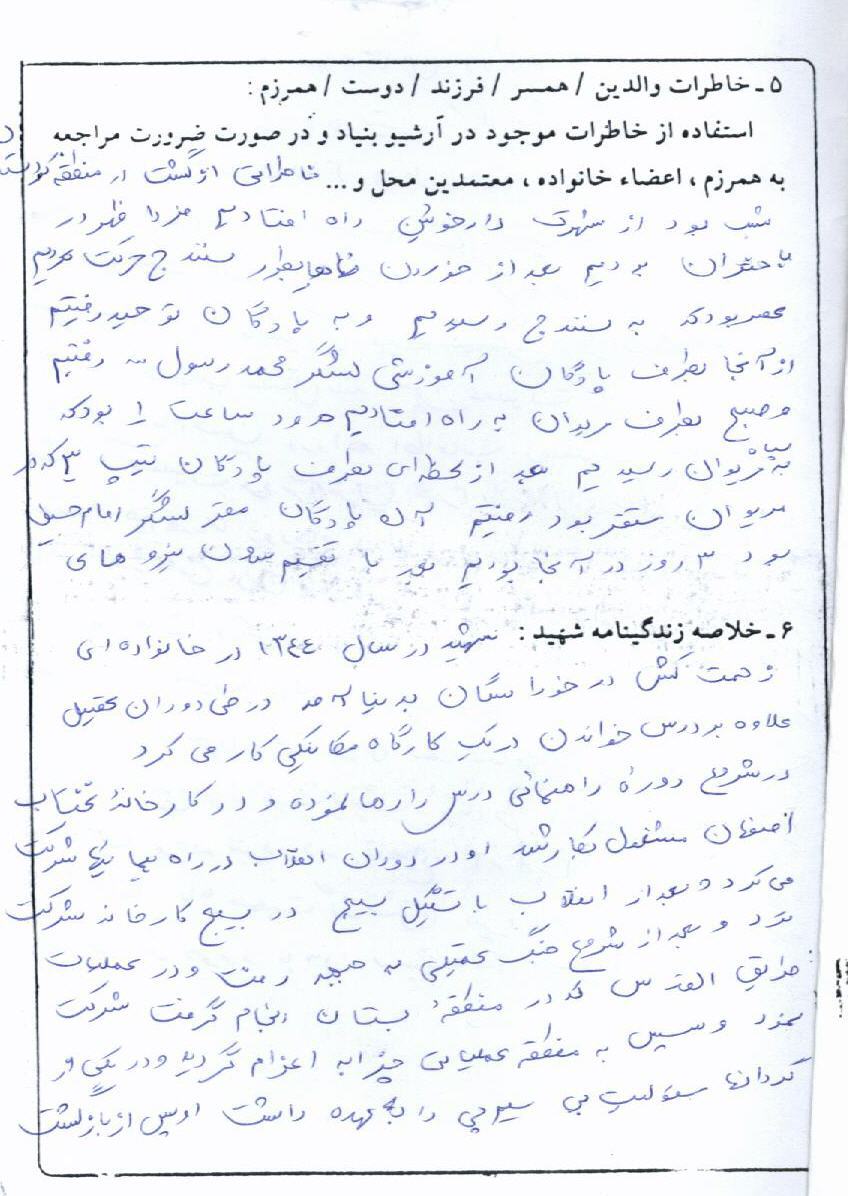 ۵ ـ خاطرات والدین / همسر / فرزند / دوست / همرزم :
استفاده از خاطرات موجود در آرشیو بنیاد و در صورت ضرورت مراجعه
به همرزم ، اعضاء خانواده ، معتمدین محل و ... خاطراتی از گشت در منطقه کردستان
شب بود از شهرک دارخوئین راه افتادیم فردا ظهر در
باختران بودیم بعد از خوردن بطرف سنندج حرکت کردیم
عصر بود که به سنندج رسیدیم و به پادگان توحید رفتیم
از آنجا بطرف پادگان آموزشی لشگر محمد رسول الله رفتیم
و صبح بطرف مریوان به راه افتادیم حدود ساعت ۱ بود که
به مریوان رسیدیم بعد از لحظه‌ای بطرف پادگان تیپ ۳ که در
مریوان مستقر بود رفتیم آن پادگان مقر لشگر امام حسین
بود ۳ روز در آنجا بودیم بعد با تقسیم شدن نیروهای
۶ ـ خلاصه زندگینامه شهید : شهید در سال ۱۳٤٤ در خانواده ای
زحمت کش در خوراسگان بدنیا آمد در طی دوران تحصیل
علاوه بر درس خواندن در یک کارگاه مکانیکی کار می کرد
در شروع دورهٔ راهنمائی درس را رها نموده و در کارخانهٔ
اصفهان مشغول بکار شد او در دوران انقلاب در راه پیمائیها شرکت
می کرد و بعد از انقلاب با تشکیل بسیج در بسیج کارخانه شرکت
کرد و بعد از شروع جنگ تحمیلی به جبهه رفت و در عملیات
طریق القدس که در منطقهٔ بستان انجام گرفت شرکت
نمود و سپس به منطقه عملیاتی چزابه اعزام گردید و در یکی از
گردانها مسئولیت بی سیم چی را به عهده داشت او پس از بازگشت